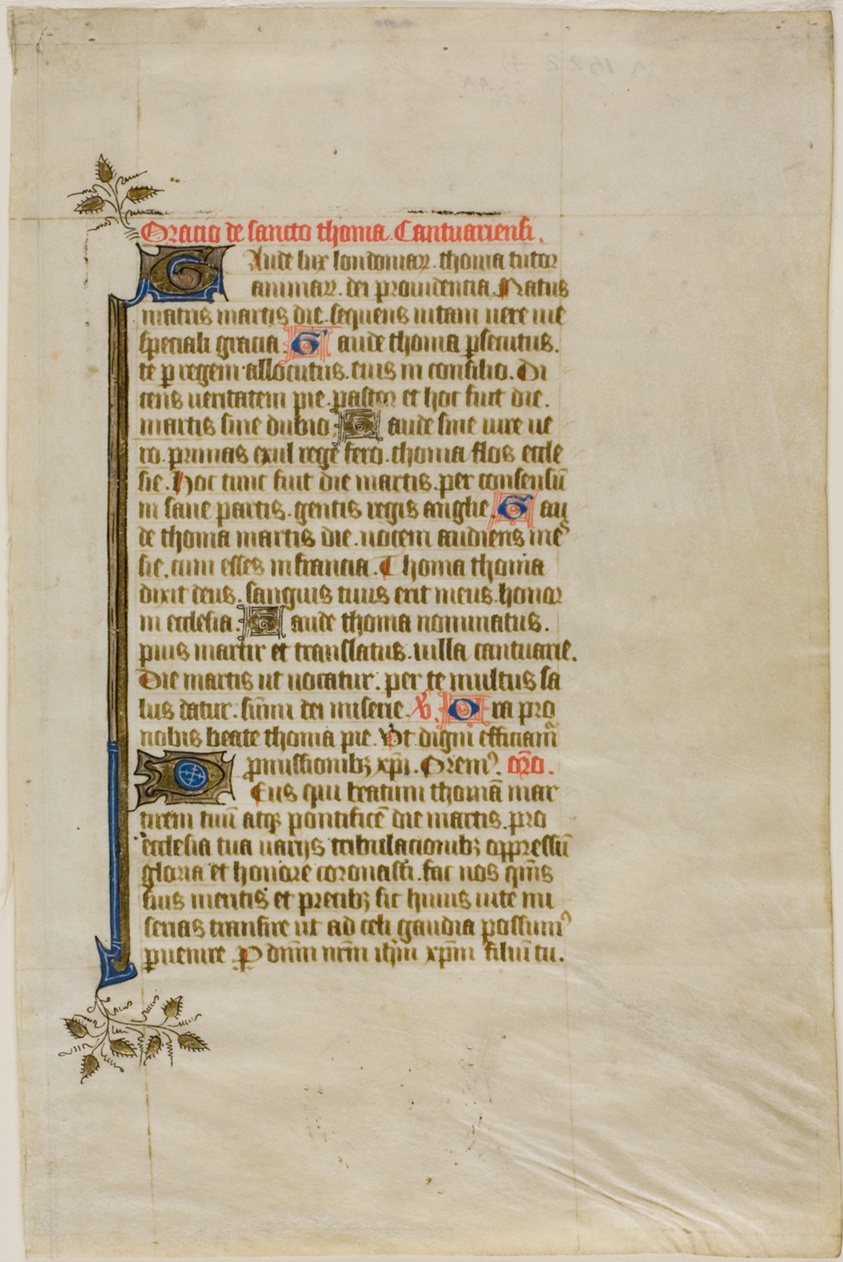 Oracio de sancto thoma Cantuariensi.
Gaude lux londoniaꝝ. thoma tutor
animaꝝ. dei prouidentia. Natus
matris martis die. sequens uitam uere uie
speciali gracia. Gaude thoma ꝑsecutus.
te ꝑ regem allocutus. tuis in consilio. Di
cens ueritatem pie. pastor et hoc fuit die.
martis sine dubio. Gaude sine uire ue
ro. primas exul rege fero. thoma flos eccle
sie. Hoc tunc fuit die martis. per consensū
in sane partis. gentis regis anglie. Gau
de thoma martis die. uocem audiens me
sie. cum esses in francia. Thoma thoma
dixit deus. sanguis tuus erit meus. honor
in ecclesia. Gaude thoma nominatus.
pius martir et translatus. uilla cantuarie.
Die martis ut uocatur. per te multus sa
lus datur. sinu dei miserie. ℣. Ora pro
nobis beate thoma pie. Vt digni efficiam̄
ꝓmissionibꝫ xp̄i. Oremꝰ. or̄o.
Deus qui beatum thomā mar
tirem tuū atqꝫ pontificē die martis. pro
ecclesia tua uarijs tribulacionibꝫ oppressū
gloria et honore coronasti. fac nos qm̄s
suis meritis et precibꝫ sic huius uite mi
serias transire ut ad celi gaudia possumꝰ
ꝑuenire. P dnm̄ nrm̄ ihm̄ xpm̄ filiū tu.